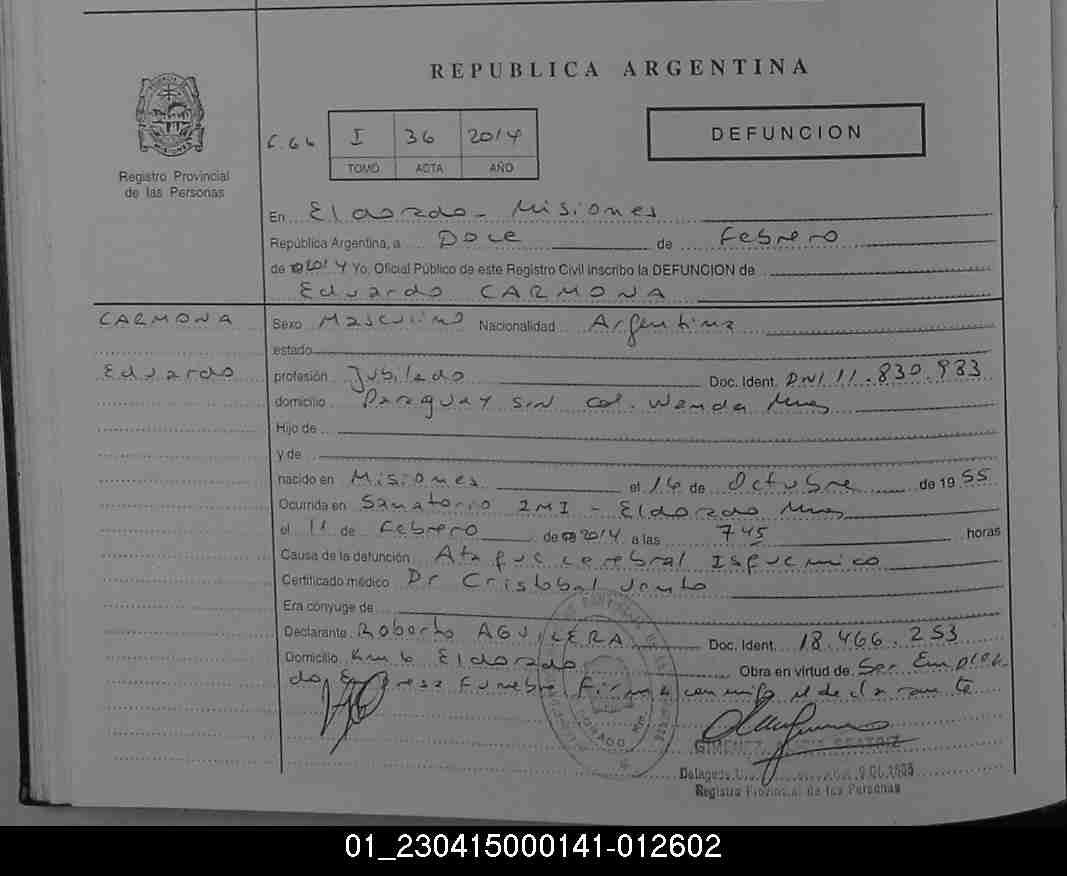 REPUBLICA ARGENTINA
I 36 2014
TOMO ACTA AÑO
DEFUNCION
Registro Provincial
de las Personas
En Eldorado - Misiones
República Argentina, a Doce de Febrero
de 2014 Yo, Oficial Público de este Registro Civil inscribo la DEFUNCION de
Eduardo CARMONA
CARMONA
Eduardo
Sexo Masculino Nacionalidad Argentina
estado
profesión Jubilado Doc. Ident. DNI 11.830.983
domicilio Paraguay s/n col. Wanda Mnes
Hijo de
y de
nacido en Misiones el 16 de Octubre de 1955
Ocurrida en Sanatorio IMI - Eldorado Mnes
el 11 de Febrero de 2014 a las 745 horas
Causa de la defunción Ataque cerebral Isquemico
Certificado médico Dr Cristobal
Era cónyuge de
Declarante Roberto AGUILERA Doc. Ident. 18.466.253
Domicilio Km 6 Eldorado Obra en virtud de Ser Emplea
do Empresa Funebre. Firma conmigo el declarante
GIMENEZ BEATRIZ
Registro Provincial de las Personas
01_230415000141-012602